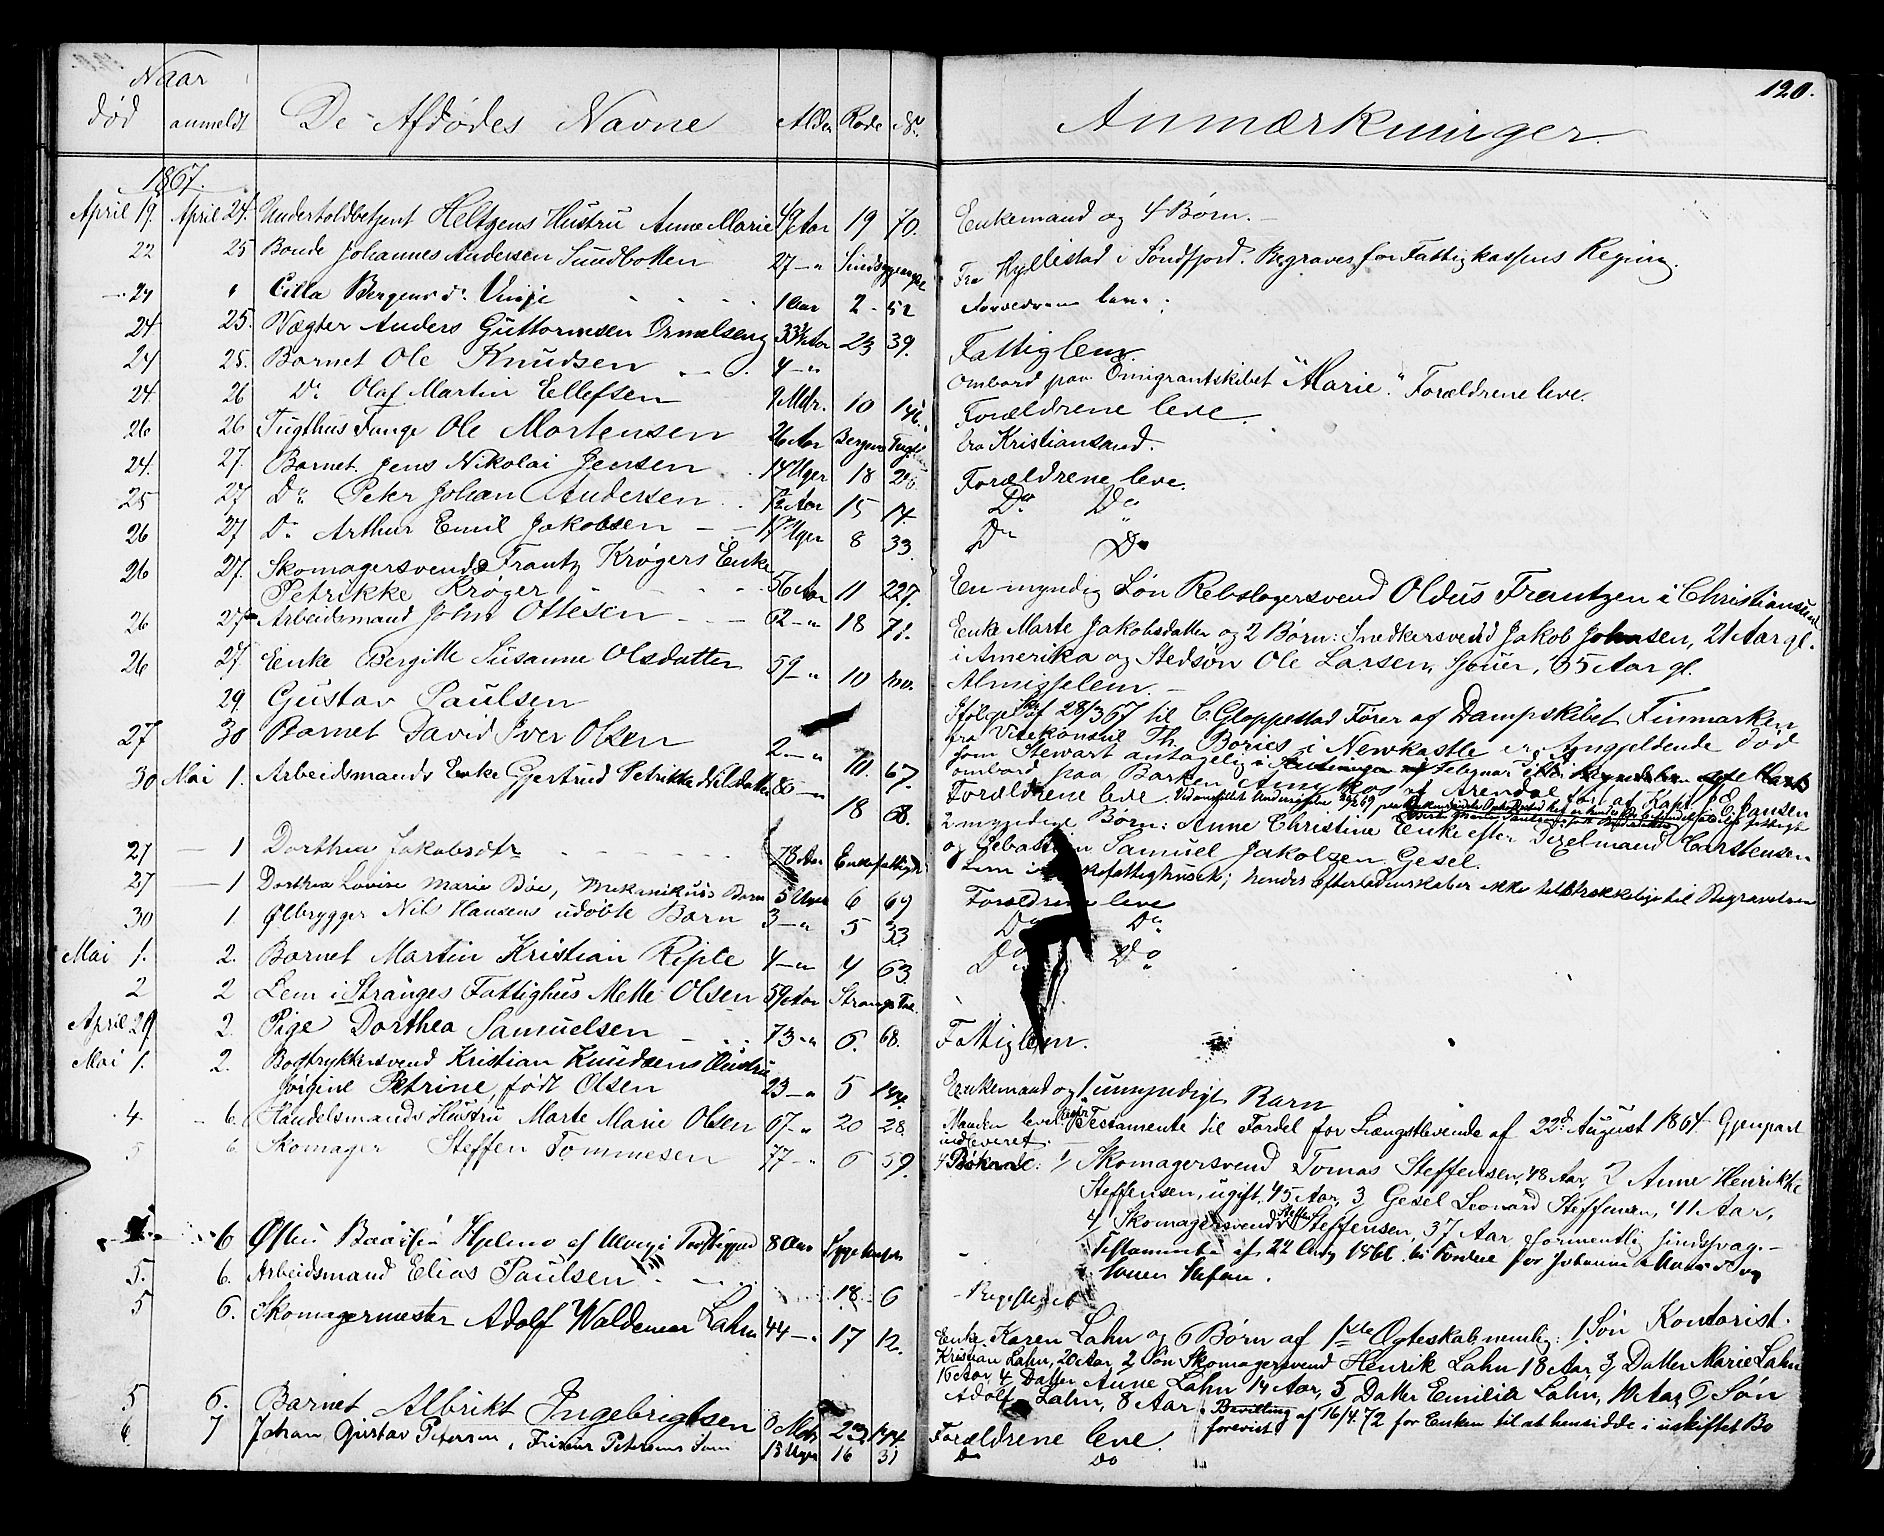 120.
Naar
død anmeldt De Afdødes Navne Alder Rode No. Anmærkninger.
1867.
April 19. April 24. Underholdbetjent Heltzens Hustru Anne Marie 49 Aar 19 70. Enkemand og 4 Børn.
22 25 Bonde Johannes Andersen Sundbotten 27 - " Sindssygeasyl Fra Hyllistad i Søndfjord. Begraves for Fattigkassens Regning.
24 " Cilla Bergens d. 1 Aar 2 - 52 Forældrene leve.
24 25. Vægter Anders Guttormsen 33½ Aar 23 39. Fattiglem.
24 25. Barnet Ole Knudsen 4 - " Ombord paa Emigrantskibet "Marie". Forældrene leve.
24 26 Do. Olaf Martin Ellefsen 9 Mdr. 10 Forældrene leve.
26 26 Tugthusfange Ole Mortensen 26 Aar Bergens Tugth fra Kristiansand.
24. 27. Barnet Jens Nikolai Jensen 14 Uger 18 Forældrene leve.
25 27 Do. Peter Johan Andersen 7½ Aar 15 14. Do. Do.
26 27 Do. Arthur Emil Jakobsen 17 Uger 8 33. Do. Do.
26 27. Skomagersvend Frantz Krøgers Enke
Petrikke Krøger 56 Aar 11 227. En myndig Søn Rebslagersvend Oldus Frantzen i Christiansund
26 27 Arbeidsmand John Ottesen 62 - " 18 71. Enke Marte Jakobsdatter og 2 Børn: Snedkersvend Jakob Johnsen, 21 Aar gl.
i Amerika og Stedsøn Ole Larsen, 35 Aar gl.
26 27. Enke Bergitte Susanne Olsdatter 59 - " 10 Almisselem.
29. Gustav Paulsen Ifølge Skr. af 28/3 67 til C. Gloppestad Fører af Dampskibet Finmarken
fra Vicekonsul Th. Bories i Newkastle er Angjeldende død
som Stewart antagelig i Februar
ombord paa Barken af Arendal ført af Kapt. E. Jansen
27 30 Barnet David Iver Olsen 2 - " 10. 67. Forældrene leve.
30 Mai 1. Arbeidsmands Enke Gjertrud Petrikke Nilsdatter 80 - " 18 8. 2 myndige Børn: Anne Christine Enke efter Dizelmand Carstensen
og Sebastian Samuel Jakobsen Gesel.
27 - 1 Dorthea Jakobsdtr 78 Aar Enkefattigh Lem i Enkefattighuset; hendes Efterladenskaber ikke tilstrækkelige til Begravelsen
27 - 1 Dorthea Lovise Marie Bøe, Mekanikus's Barn 5 Uger 6 69 Forældrene leve
30 1. Ølbrygger Nils Hansens udøbte Barn 3 - " 5 33 Do. Do.
Mai 1. 2. Barnet Martin Kristian Riple 4 - " 4 63 Do. Do.
2 2 Lem i Stranges Fattighus Mette Olsen 59 Aar Strangs Fat.
April 29. 2. Pige Dorthea Samuelsen 73 - " 6. 68. Fattiglem.
Mai 1. 2. Bogtrykkersvend Kristian Knudsens Hustru
Jørgine Petrine, født Olsen 23 - " 5 144. Enkemand og 1 umyndigt Barn
4. 6. Handelsmands Hustru Marte Marie Olsen 67 - " 20 28. Manden lever. Testamente til Fordel for Længstlevende af 22d August 1864. Gjenpart
indleveret.
5 6 Skomager Steffen Tommesen 77 - " 6 59. 4 Børn: 1/ Skomagersvend Tomas Steffensen, 48 Aar, 2 Anne Henrikke
Steffensen, ugift, 45 Aar, 3, Gesel Leonard Steffensen, 41 Aar,
4/ Skomagersvend Steffen Steffensen, 37 Aar formentlig sindssvag. -
Testamente af 22 Aug 1866. til Fordeel for
Sønnen Stefan.
6 8 Aar
5. 6. Arbeidsmand Elias Paulsen 18 6 Registeret
5 6. Skomagermester Adolf Waldemar Lahn 44 - " 17 12. Enke Karen Lahn og 6 Børn af 1ste Ægteskab nemlig: 1 Søn Kontorist.
Kristian Lahn, 20 Aar, 2 Søn Skomagersvend Henrik Lahn 18 Aar, 3, Datter Marie Lahn
16 Aar, 4 Datter Anne Lahn 14 Aar, 5 Datter Emilia Lahn, 10 Aar, 6 Søn
Adolf Lahn, 8 Aar. Bevilling af 16/4. 72 for Enken til at hensidde i uskiftet Bo
forevist
5 6. Barnet Albrikt Ingebrigtsen 8 Mdr 23 144. Forældrene leve.
6. 7 Johan Gustav Petersen, Friseur Petersens Søn 15 Uger 16 31 Do Do